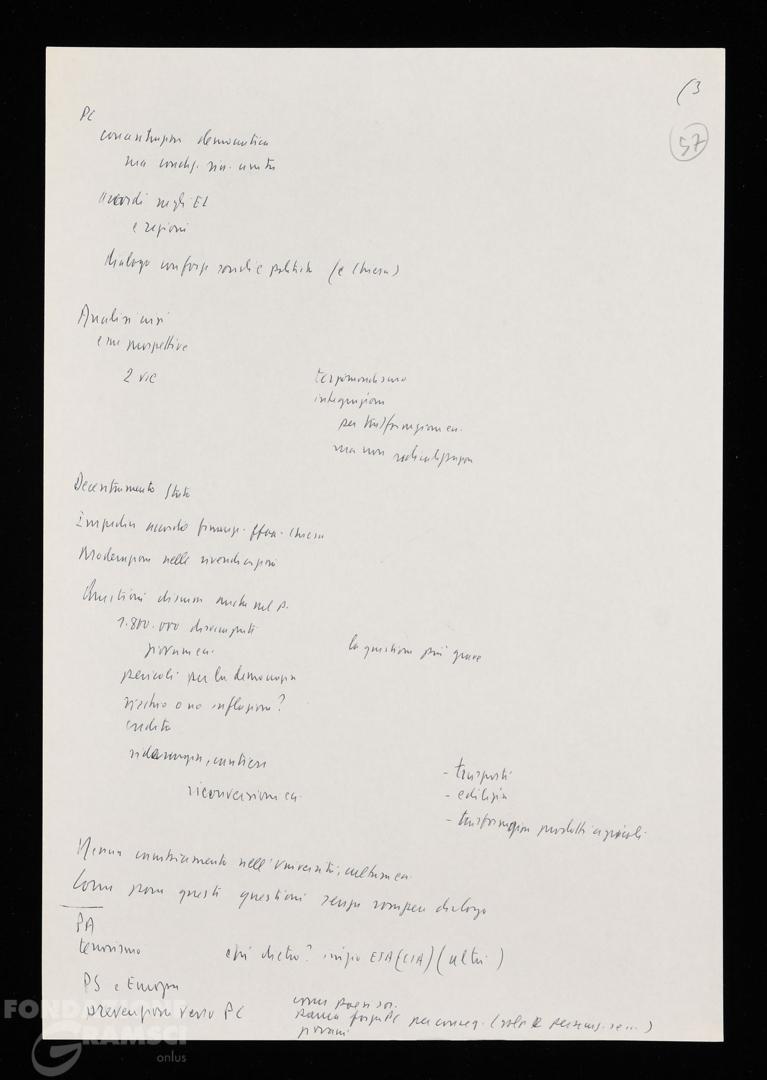 (3
57
PC
concentrazion democratica
ma condiz. sin. unita
Accordi negli EL
e regioni
dialogo con forze sociali e politiche (e Chiesa)
Analisi crisi
e sue prospettive
2 vie
terzomondismo
integrazione
per trasformazione ec.
ma non radicalizzazion
Decentramento Stato
Impedire accordo finanz. ffaa. Chiesa
Moderazione nelle rivendicazioni
Questioni discusse anche nel p.
1.800.000 disoccupati
giovani ec.
la questione più grave
pericoli per la democrazia
rischio o no inflazione?
credito
siderurgia, cantieri
riconversione ec.
- trasporti
- edilizia
- trasformazion prodotti agricoli
Nessun cambiamento nell'Università, cultura ec.
Come porre questi questioni senza rompere dialogo
PA
terrorismo
chi dietro? inizio ETA (CIA) (altri)
PS e Europa
prevenzioni verso PC
come paesi soc.
scarsa forza PC
giovani